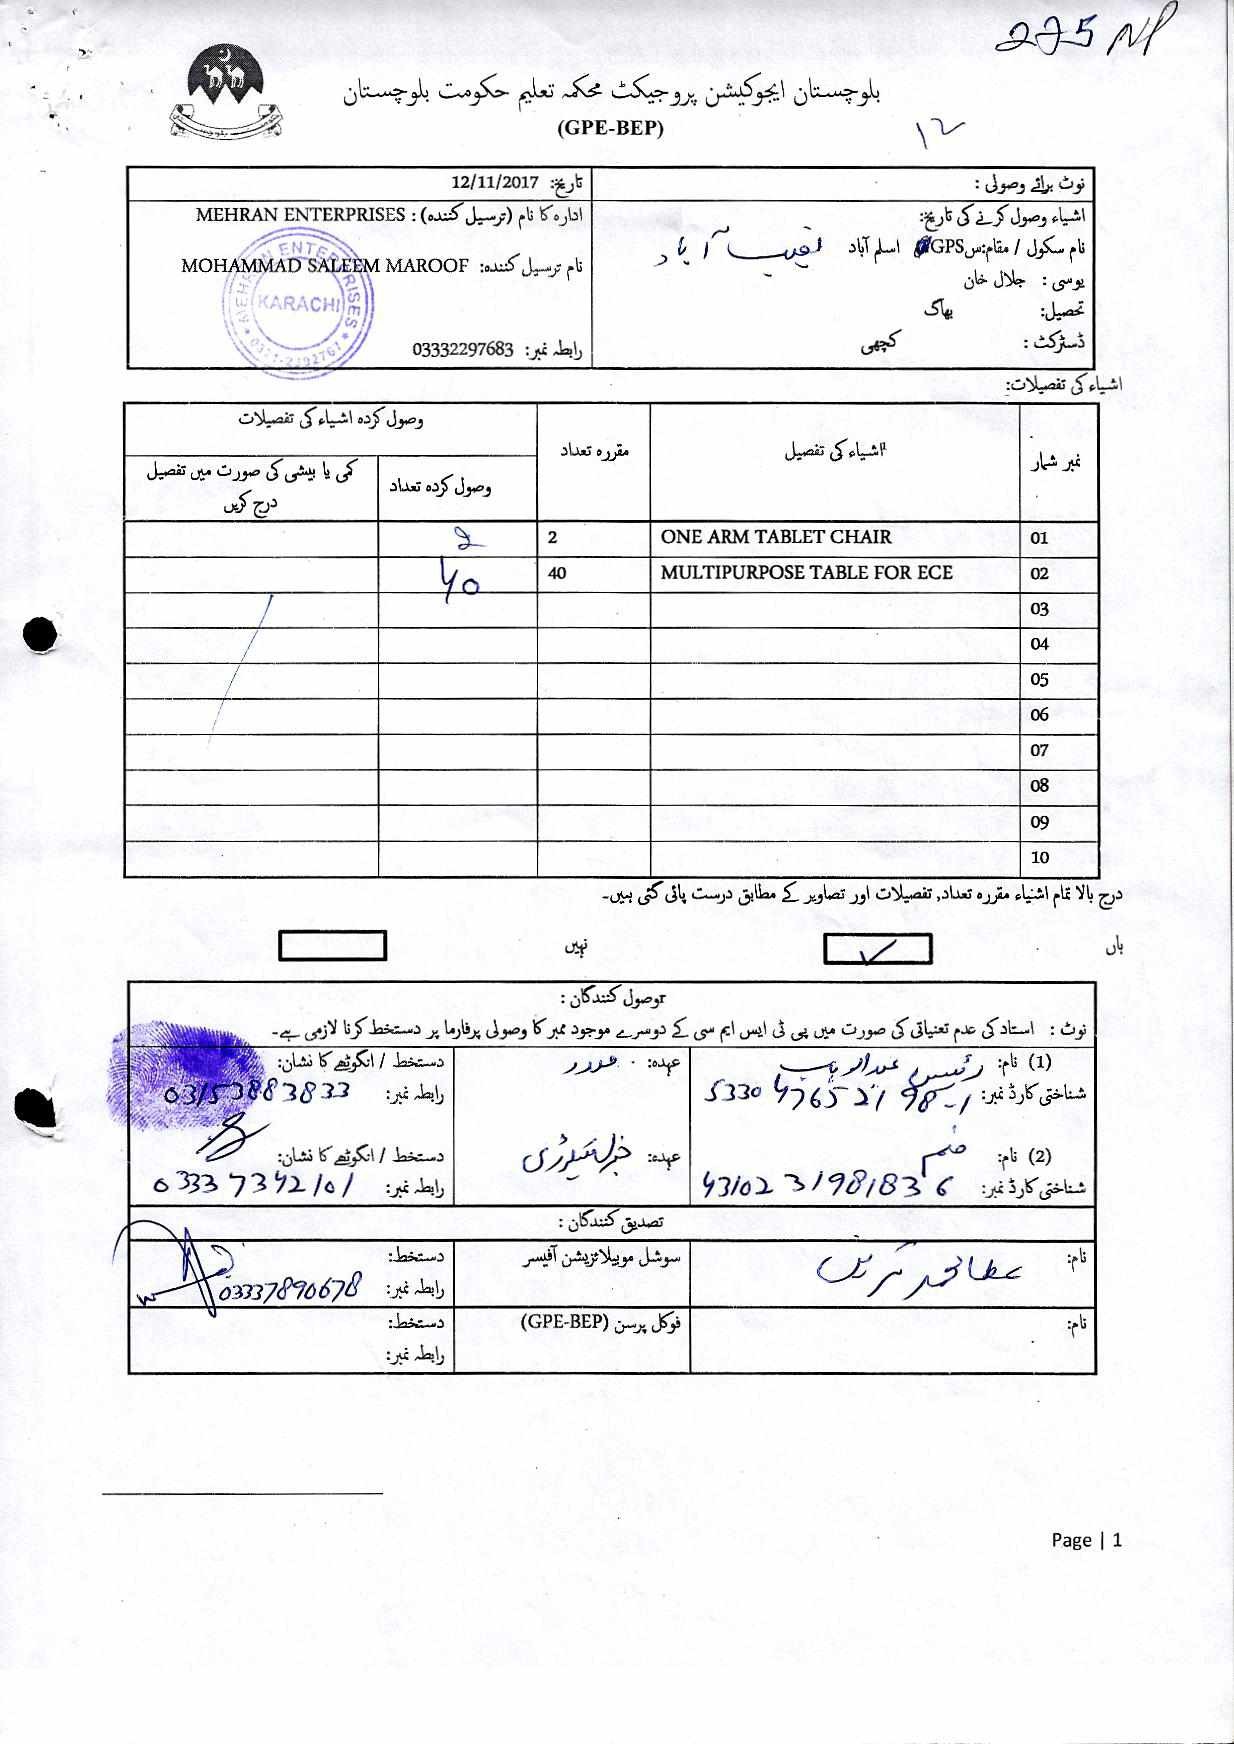 275 NP
بلوچستان ایجوکیشن پروجیکٹ محکمہ تعلیم حکومت بلوچستان
(GPE-BEP)
۱۲
نوٹ برائے وصولی :
تاریخ: 12/11/2017
اشیاء وصول کرنے کی تاریخ:
نام سکول / مقام: GPS اسلم آباد نقیب آباد
یوسی : جلال خان
تحصیل: بھاگ
ڈسٹرکٹ : کچھی
ادارہ کا نام (ترسیل کنندہ) : MEHRAN ENTERPRISES
نام ترسیل کنندہ: MOHAMMAD SALEEM MAROOF
رابطہ نمبر: 03332297683
MEHRAN ENTERPRISES
KARACHI
اشیاء کی تفصیلات:
نمبر شمار اشیاء کی تفصیل مقررہ تعداد وصول کردہ اشیاء کی تفصیلات
وصول کردہ تعداد کمی یا بیشی کی صورت میں تفصیل درج کریں
01 ONE ARM TABLET CHAIR 2 2
02 MULTIPURPOSE TABLE FOR ECE 40 40
03
04
05
06
07
08
09
10
درج بالا تمام اشیاء مقررہ تعداد, تفصیلات اور تصاویر کے مطابق درست پائی گئی ہیں۔
ہاں ✓ نہیں
وصول کنندگان :
نوٹ : استاد کی عدم تعیناتی کی صورت میں پی ٹی ایس ایم سی کے دوسرے موجود ممبر کا وصولی پرفارما پر دستخط کرنا لازمی ہے۔
(1) نام: رئیس عبدالوہاب عہدہ: دستخط / انگوٹھے کا نشان:
شناختی کارڈ نمبر: رابطہ نمبر: 03153883833
(2) نام: عہدہ: جنرل سیکرٹری دستخط / انگوٹھے کا نشان:
شناختی کارڈ نمبر: 43102 3198183 6 رابطہ نمبر: 0333 7342101
تصدیق کنندگان :
نام: عطا محمد سوشل موبیلائزیشن آفیسر دستخط:
رابطہ نمبر: 03337890678
نام: فوکل پرسن (GPE-BEP) دستخط:
رابطہ نمبر:
Page | 1